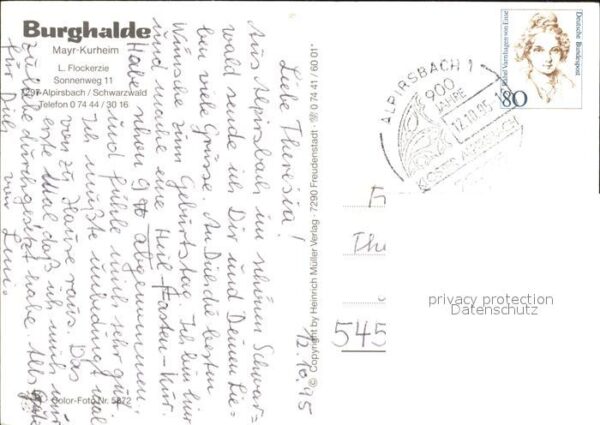 Burghalde
Mayr-Kurheim
L. Flockerzie
Sonnenweg 11
7297 Alpirsbach / Schwarzwald
Telefon 0 74 44 / 30 16
Color-Foto Nr. 5872
12.10.95
Liebe Theresia!
Aus Alpirsbach im schönen Schwarz=
wald sende ich Dir und Deinen Lie=
ben viele Grüsse. An Dich die besten
Wünsche zum Geburtstag. Ich bin hier
und mache eine Heil-Fasten-Kur.
Habe schon 9 abgenommen.
und fühle mich sehr gut.
Ich mußte unbedingt mal
von zu Hause raus. Das
erste Mal daß ich mich
durchgesetzt habe. Alles Gute
für Dich
von Leni.
© Copyright by Heinrich Müller Verlag · 7290 Freudenstadt · ☏ 0 74 41 / 60 01
ALPIRSBACH 1
900
JAHRE
12.10.95
KLOSTER ALPIRSBACH
Deutsche Bundespost
Rahel Varnhagen von Ense
80
F
The
545
privacy protection
Datenschutz